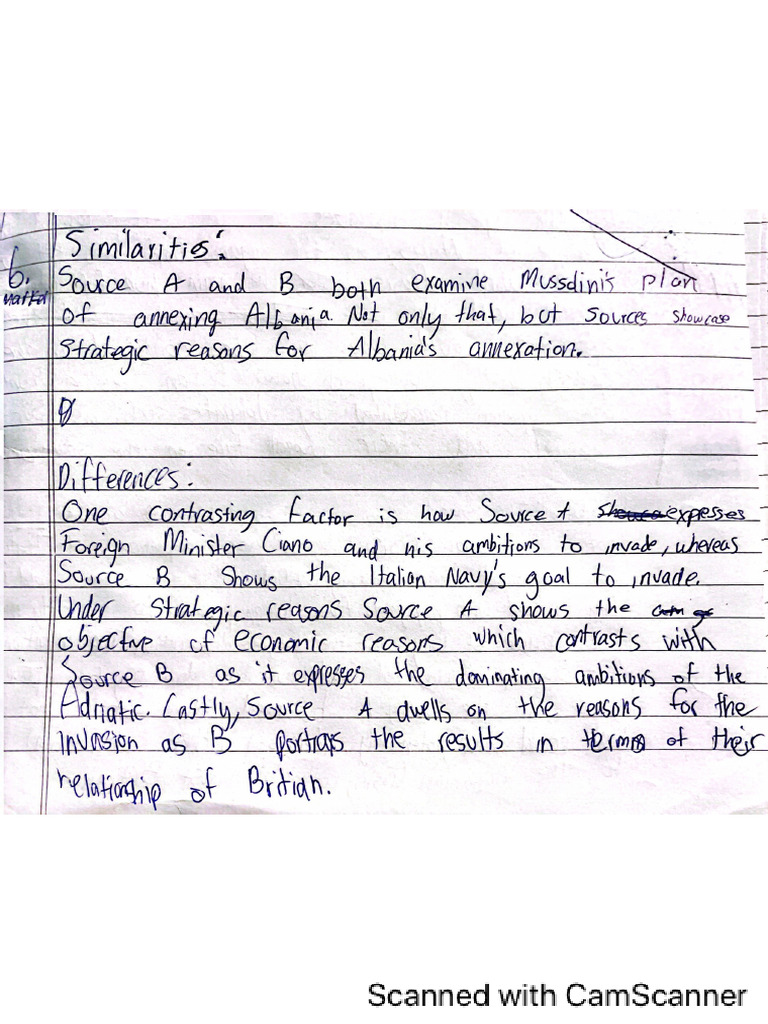 Similarities:
6. Source A and B both examine Mussolini's plan
of annexing Albania. Not only that, but sources showcase
strategic reasons for Albania's annexation.
Differences:
One contrasting factor is how Source A expesses
Foreign Minister Ciano and his ambitions to invade, whereas
Source B shows the Italian Navy's goal to invade.
Under strategic reasons Source A shows the
objective of economic reasons which contrasts with
Source B as it expresses the dominating ambitions of the
Adriatic. Lastly, Source A dwells on the reasons for the
invasion as B portrays the results in terms of their
relationship of Britian.
Scanned with CamScanner